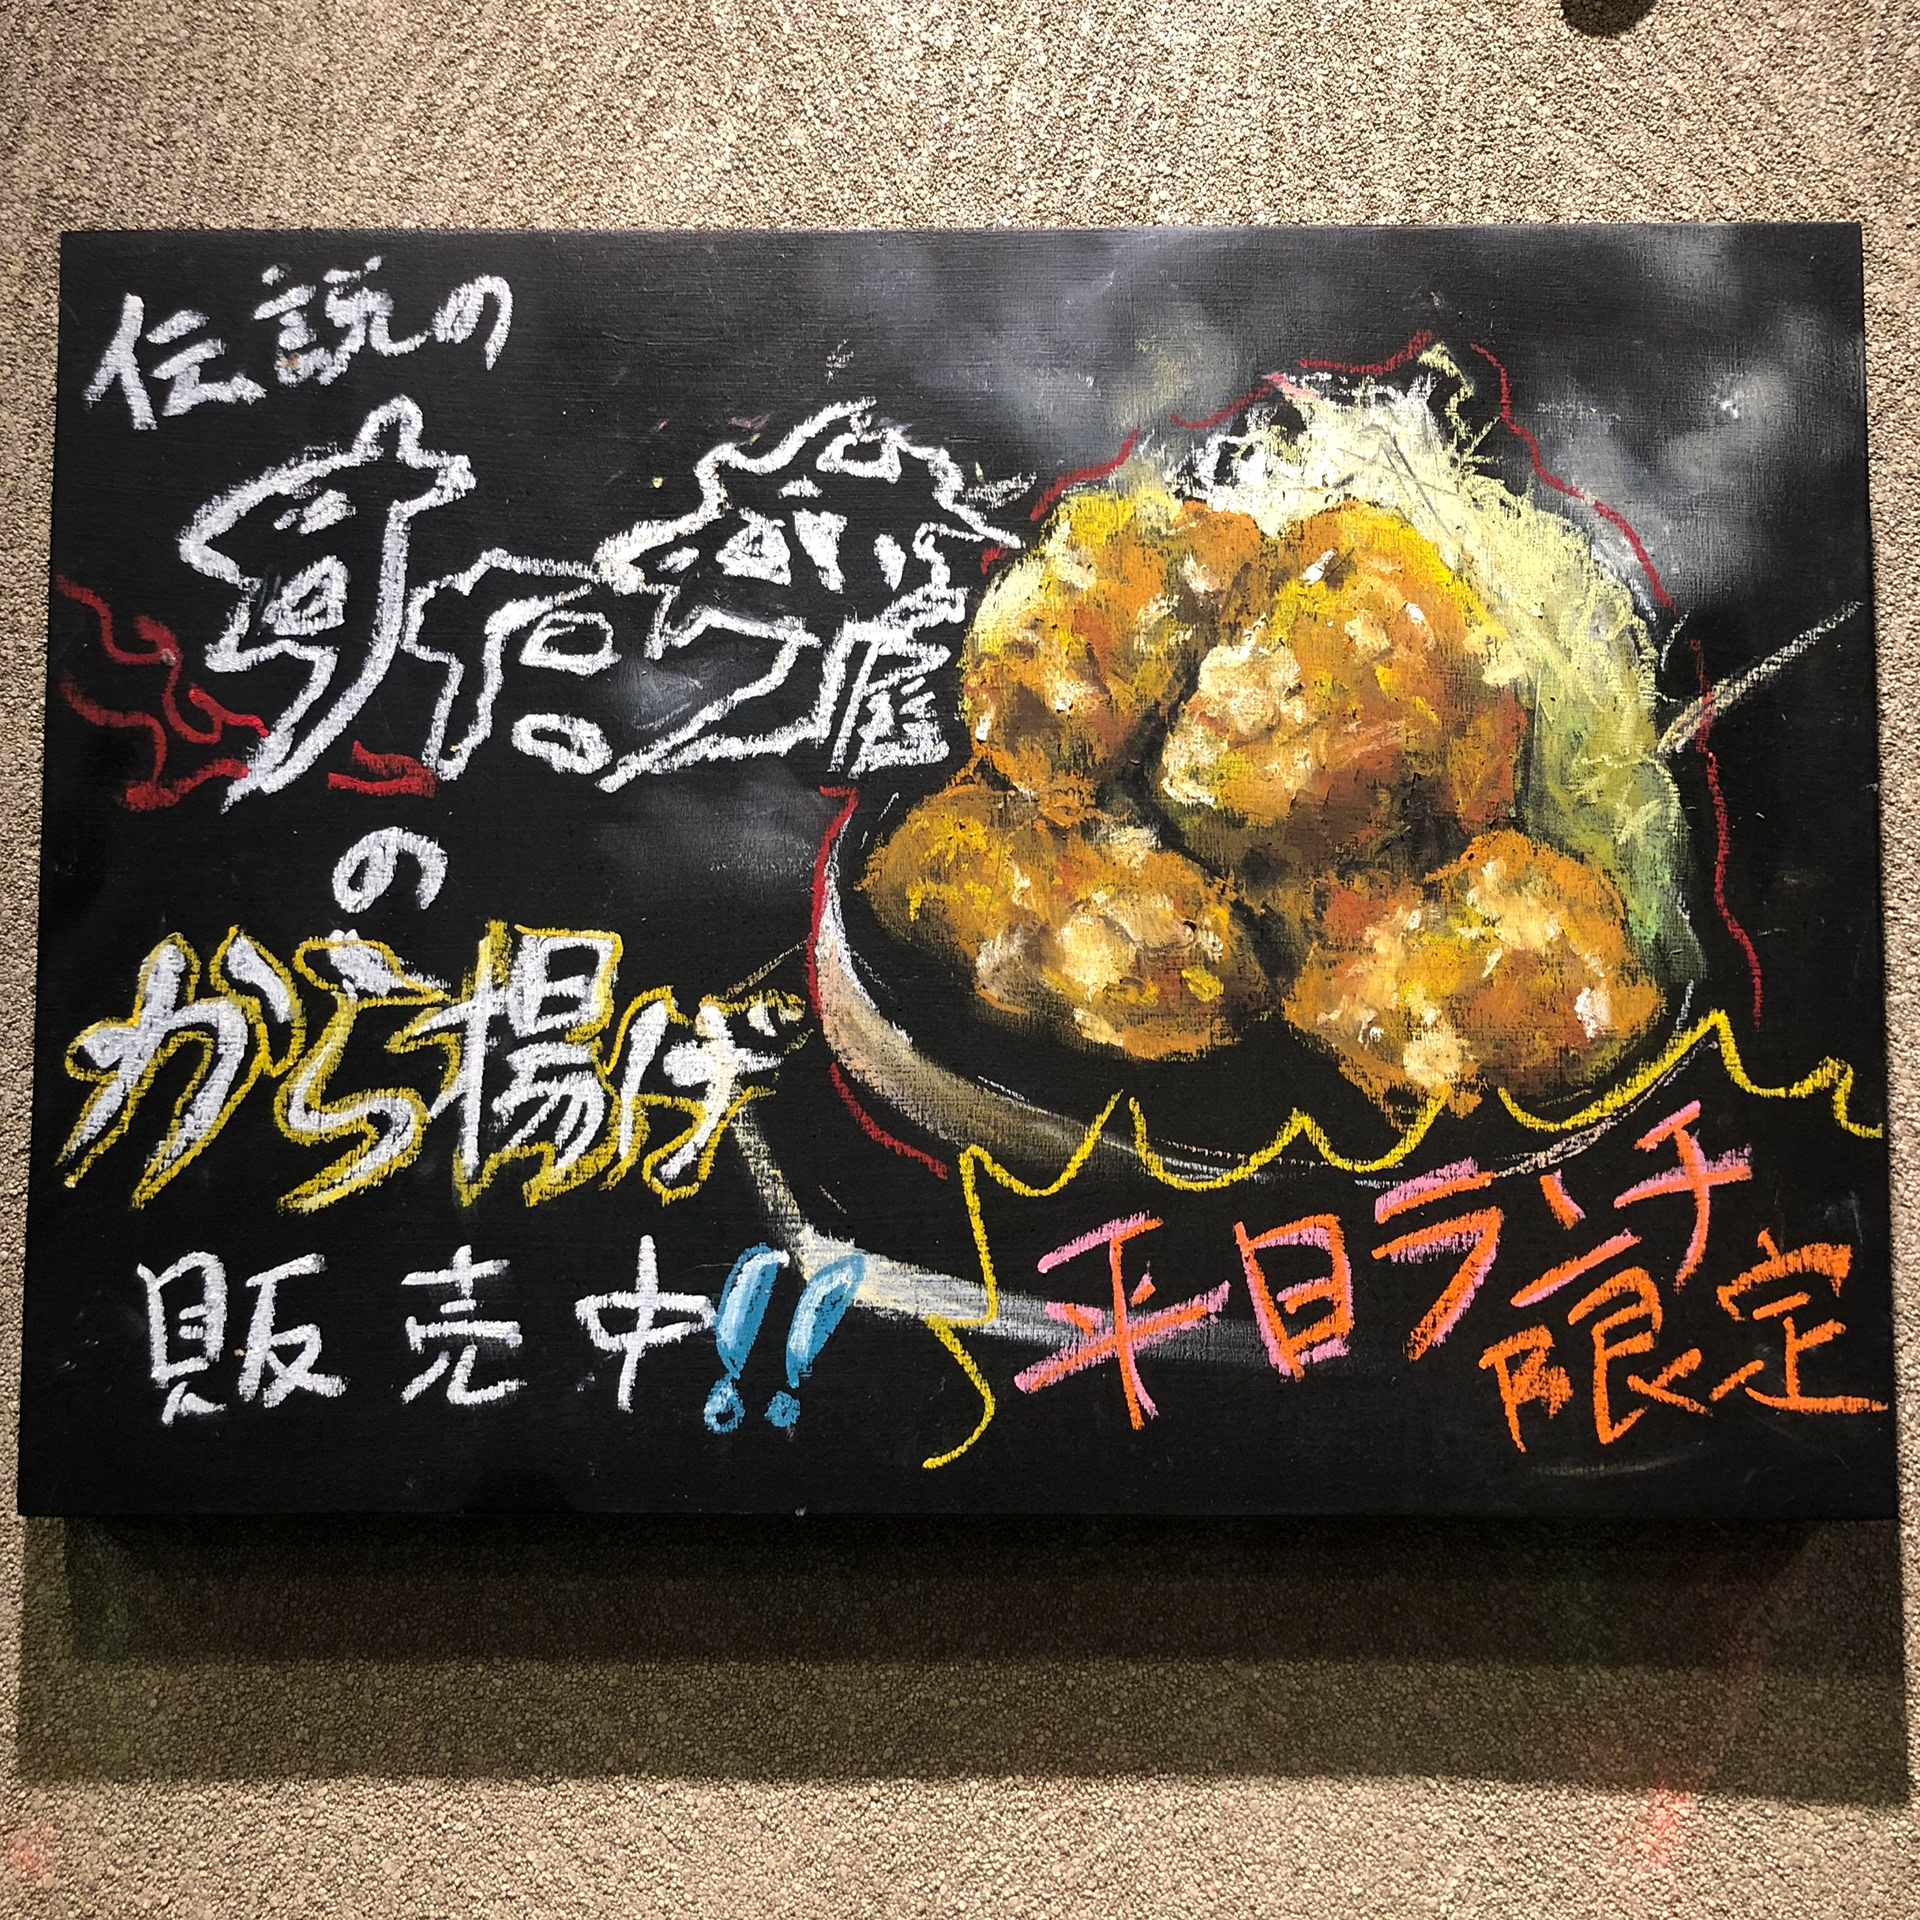 伝説の
の
から揚げ
販売中!!
平日ランチ
限定